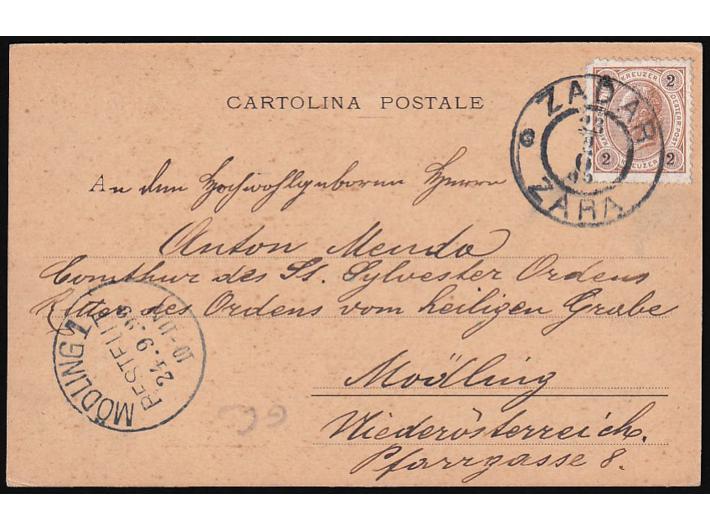 CARTOLINA POSTALE
ZADAR
ZARA
2 KREUZER 2
2 2
An den Hochwohlgeboren Herrn
Anton Menda
Comthur des St. Sylvester Ordens
Ritter des Ordens vom heiligen Grabe
Mödling
Niederösterreich.
Pfarrgasse 8.
MÖDLING 1
BESTELLT